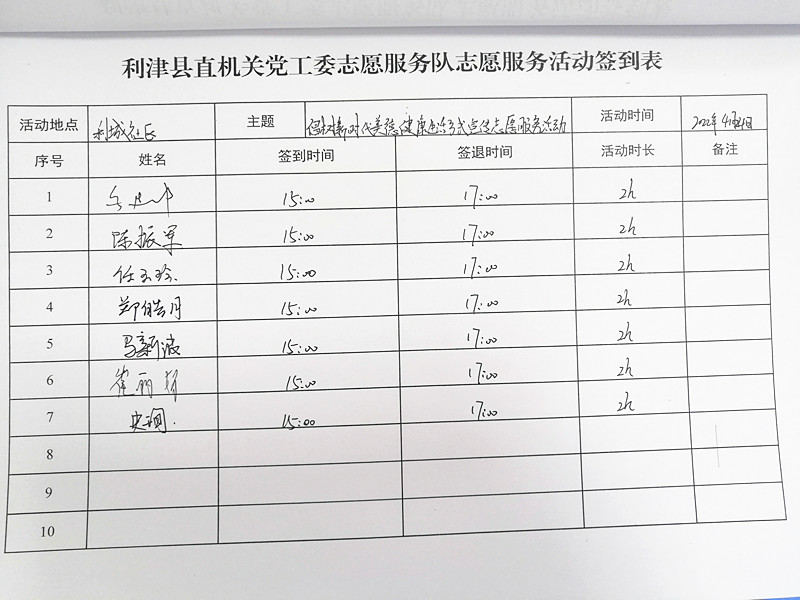 利津县直机关党工委志愿服务队志愿服务活动签到表
活动地点 利城社区 主题 倡树新时代美德健康生活方式宣传志愿服务活动 活动时间 2022年4月24日
序号 姓名 签到时间 签退时间 活动时长 备注
1 15:00 17:00 2h
2 陈振军 15:00 17:00 2h
3 任玉玲 15:00 17:00 2h
4 郑皓月 15:00 17:00 2h
5 马新波 15:00 17:00 2h
6 崔丽 15:00 17:00 2h
7 15:00 17:00 2h
8
9
10